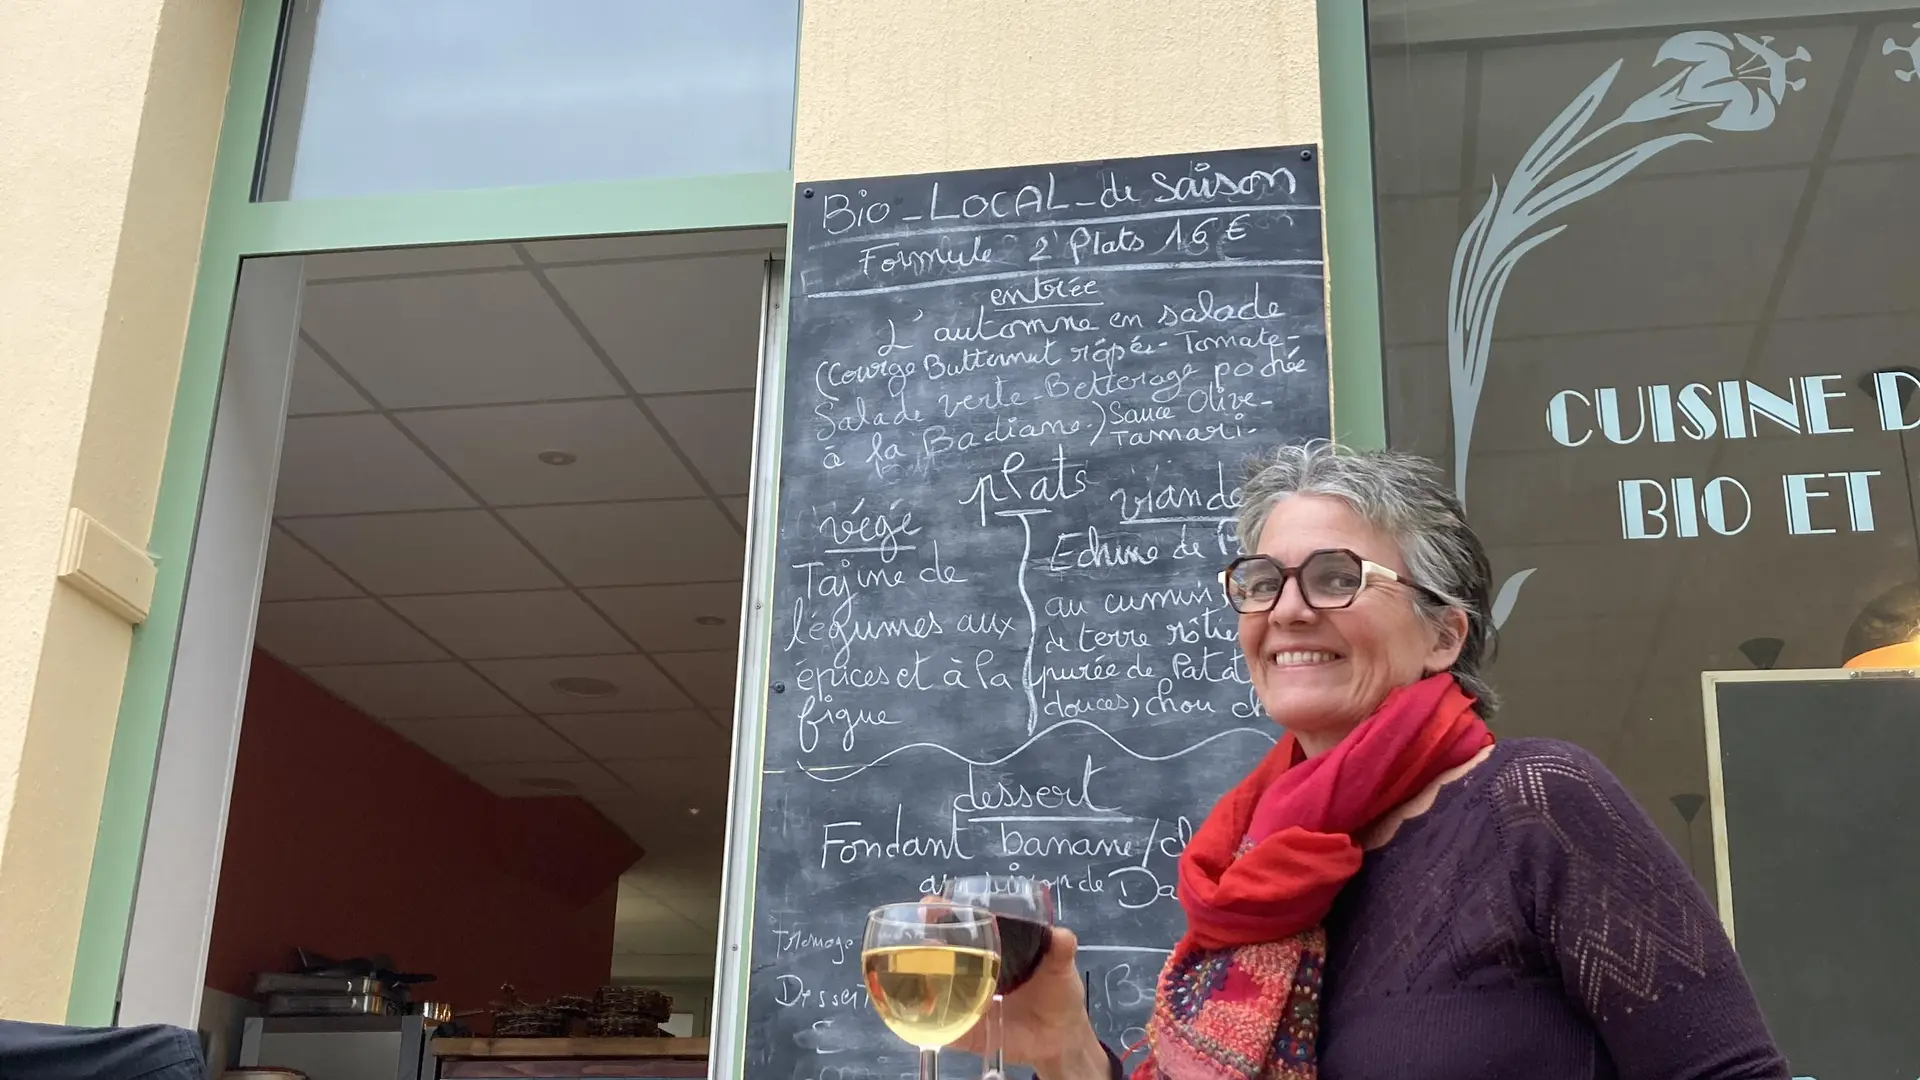 Bio - LOCAL - de Saison
Formule 2 Plats 16 €
entrée
L'automne en salade
(Courge Butternut râpée - Tomate -
Salade verte - Betterage pochée
à la Badiane.) Sauce Olive -
Tamari.
plats
végé
Tajine de
légumes aux
épices et à la
figue
viande
Echine de
au cumin,
de terre
purée de Patat
douces) chou
dessert
Fondant banane/
de
Fromage
CUISINE D
BIO ET